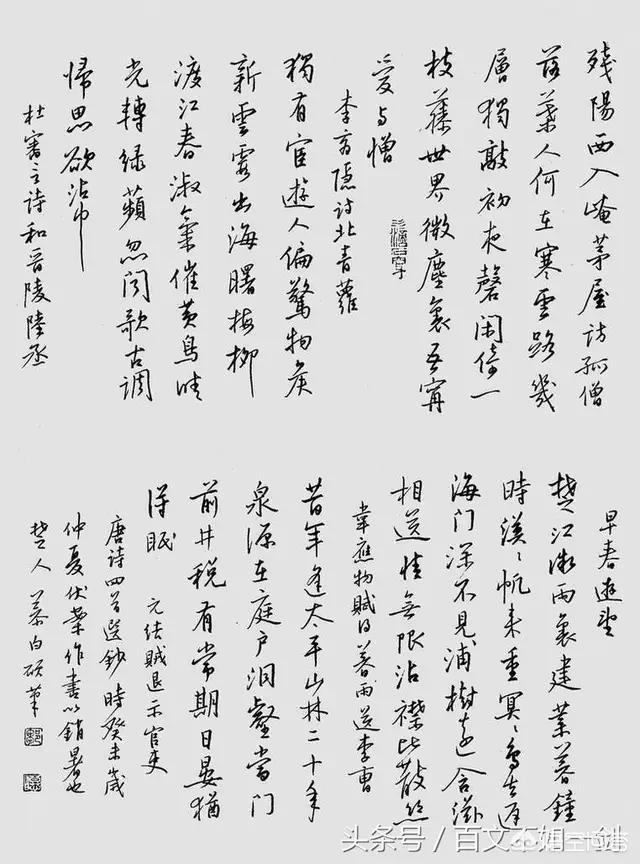 殘陽西入崦茅屋訪孤僧
落葉人何在寒雲路幾
層獨敲初夜磬閑倚一
枝藤世界微塵裏吾甯
愛与憎
李商隱詩北青蘿
獨有宦遊人偏驚物候
新雲霞出海曙梅柳
渡江春淑氣催黄鳥晴
光轉緑蘋忽聞歌古調
歸思欲沾巾
杜審言詩和晉陵陸丞
早春遊望
楚江微雨裏建業暮鐘
時漠〻帆来重冥〻鳥去遲
海门深不見浦樹遠含滋
相送情無限沾襟比散絲
韋應物賦得暮雨送李曹
昔年逢太平山林二十年
泉源在庭户洞壑當门
前井税有常期日晏猶
得眠 元结賊退示官吏
唐诗四首選鈔時癸未歲
仲夏伏案作書以銷暑也
楚人慕白硕筆
头条号／百文不如一